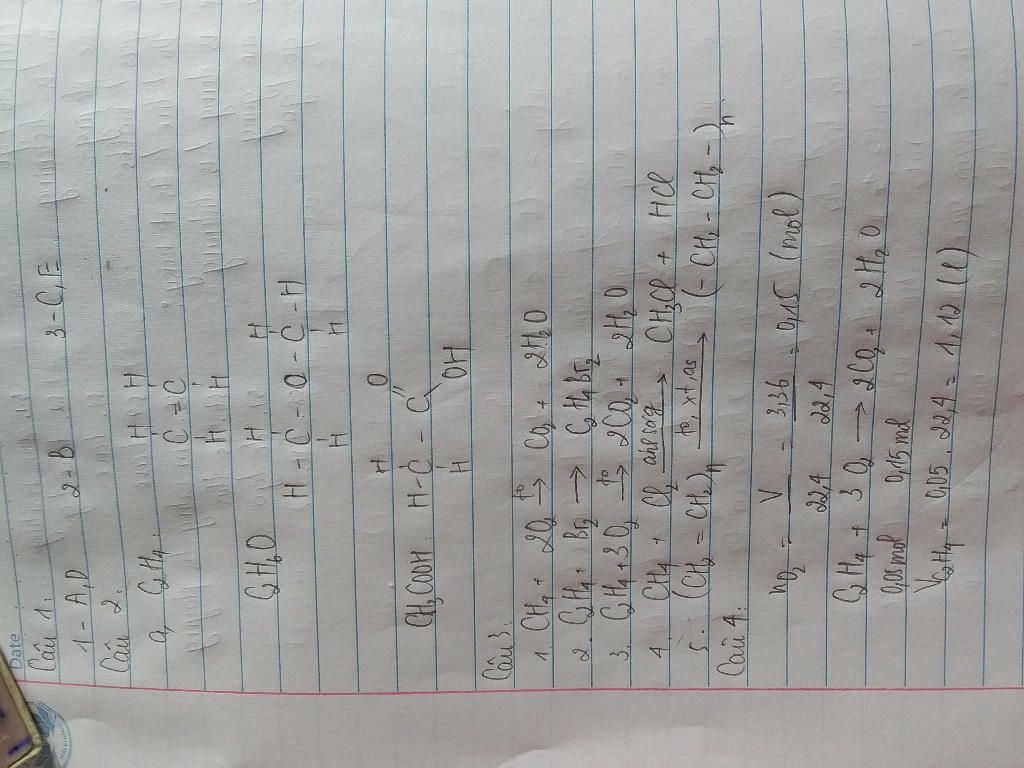 Date
Câu 1:
1 - A, D 2 - B 3 - C, E
Câu 2:
a, C2H4: H H
C = C
H H
C2H6O H H
H - C - O - C - H
H H
H O
CH3COOH: H - C - C
H OH
Câu 3:
1. CH4 + 2O2 →(t°) CO2 + 2H2O
2. C2H4 + Br2 → C2H4Br2
3. C2H4 + 3O2 →(t°) 2CO2 + 2H2O
4. CH4 + Cl2 →(ánh sáng) CH3Cl + HCl
5. (CH2 = CH2)n →(t°, xt, as) (- CH2 - CH2 -)n
Câu 4:
nO2 = V / 22,4 = 3,36 / 22,4 = 0,15 (mol)
C2H4 + 3O2 → 2CO2 + 2H2O
0,05 mol 0,15 mol
VC2H4 = 0,05 . 22,4 = 1,12 (l)